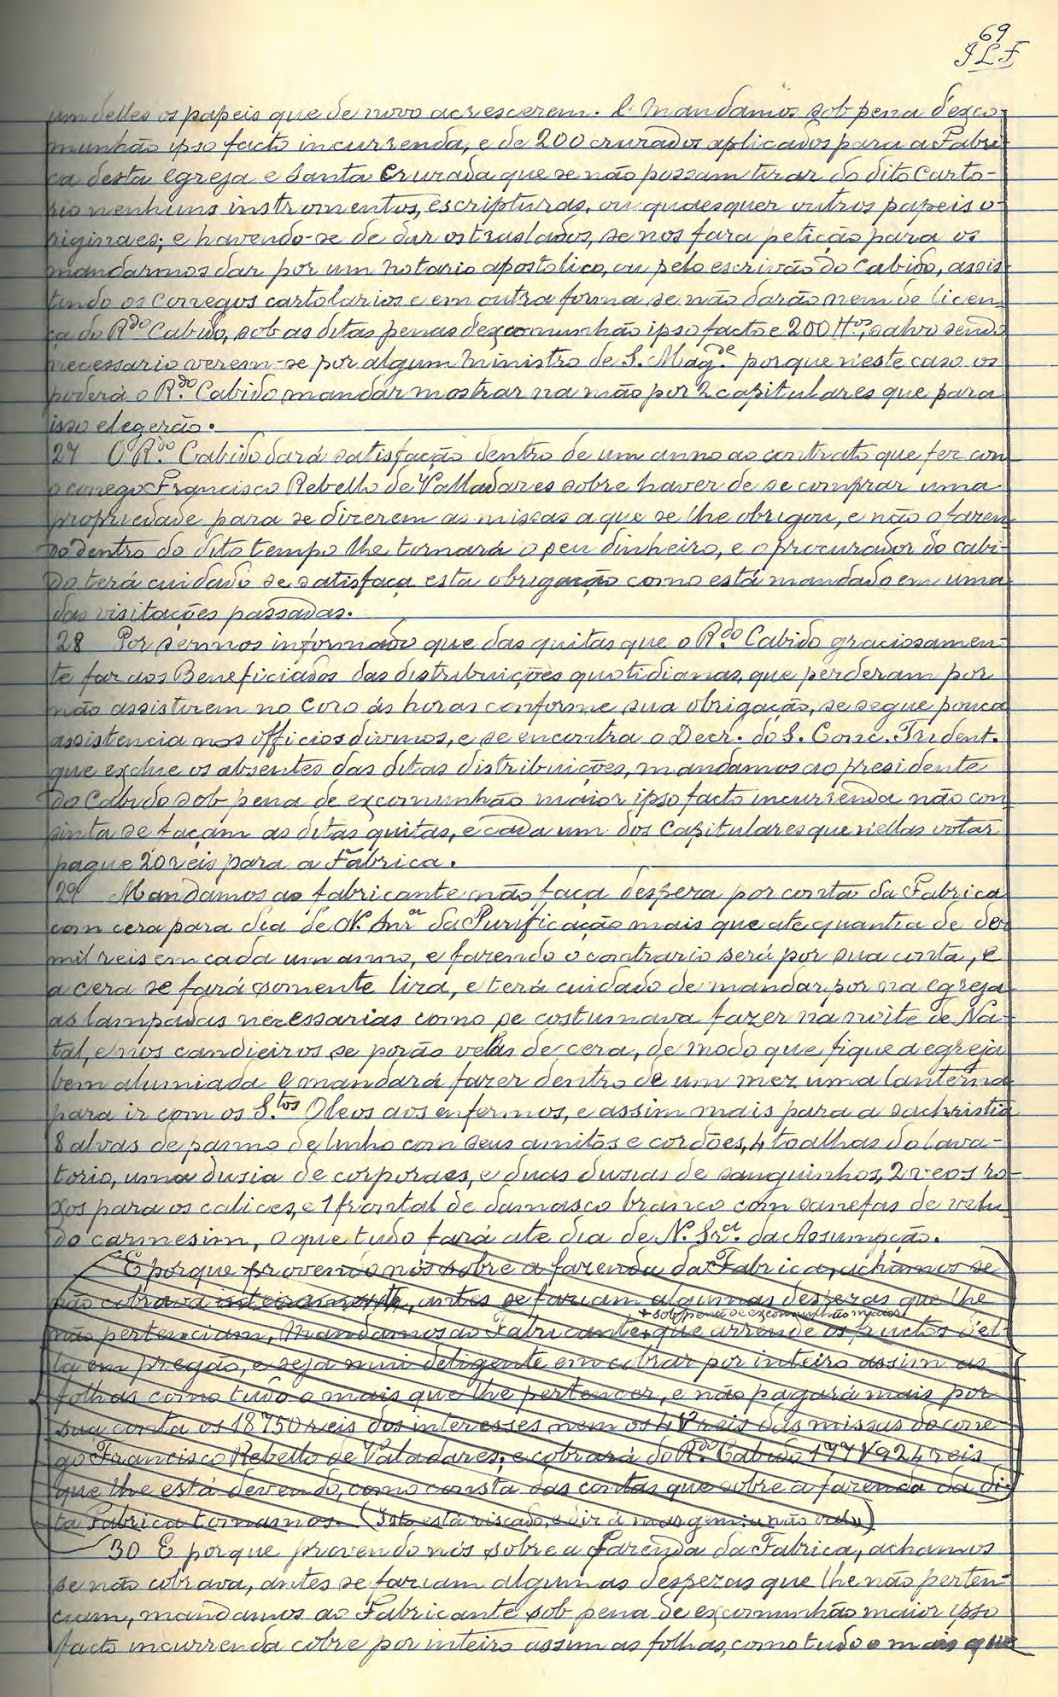 69
J L F
um delles os papeis que de novo acrescerem. E Mandamos sob pena d'exco-
munhão ipso facto incurrenda, e de 200 cruzados aplicados para a Fabri-
ca desta egreja e Santa Cruzada que se não possam tirar do dito Carto-
rio nenhuns instromentos, escripturas, ou quaesquer outros papeis o-
riginaes; e havendo-se de dar os traslados, se nos fara petição para os
mandarmos dar por um notario apostolico, ou pelo escrivão do Cabido, assis-
tindo os Conegos cartolarios e em outra forma se não darão nem de licen-
ça do R.do Cabido, sob as ditas penas d'excomunhão ipso facto e 200 #os, salvo sendo
necessario verem-se por algum Ministro de S. Mag.de porque n'este caso os
poderá o R.do Cabido mandar mostrar na mão por 2 capitulares que para
isso elegerão.
27 O R.do Cabido dará satisfação dentro de um anno ao contrato que fez com
o conego Francisco Rebello de Valladares sobre haver de se comprar uma
propriedade para se dizerem as missas a que se lhe obrigou, e não o fazen-
do dentro do dito tempo lhe tornará o seu dinheiro, e o procurador do cabi-
do terá cuidado se satisfaça esta obrigação como está mandado em uma
das visitações passadas.
28 Por sermos informado que das quitas que o R.do Cabido graciosamen-
te faz aos Beneficiados das distribuições quotidianas, que perderam por
não assistirem no coro ás horas conforme sua obrigação, se segue pouca
assistencia nos officios divinos, e se encontra o Decr. do S. Conc. Trident.
que exclue os absentes das ditas distribuições, mandamos ao presidente
do Cabido sob pena de excomunhão maior ipso facto incurrenda não con-
sinta se façam as ditas quitas, e cada um dos Capitulares que n'ellas votar
pague 20 reis para a Fabrica.
29 Mandamos ao fabricante não faça despeza por conta da Fabrica
com cera para dia de N. Snr.a da Purificação mais que ate quantia de dez
mil reis em cada um anno, e fazendo o contrario será por sua conta, e
a cera se fará somente lira, e terá cuidado de mandar por na egreja
as lampadas necessarias como se costumava fazer na noite de Na-
tal, e nos candieiros se porão velas de cera, de modo que fique a egreja
bem alumiada E mandará fazer dentro de um mez uma lanterna
para ir com os S.tos Oleos aos enfermos, e assim mais para a sachristia
8 alvas de panno de linho com seus amitos e cordões, 4 toalhas do lava-
torio, uma dusia de corporaes, e duas dusias de sanguinhos, 2 veos ro-
xos para os calices, e 1 frontal de damasco branco com sanefas de velu-
do carmesim, o que tudo fará ate dia de N. Sr.a da Assumpção.
E porque provendo nós sobre a fazenda da Fabrica, achamos se
não cobrava inteiramente, antes se faziam algumas despezas que lhe
+ sob pena de excomunhão maior
não pertenciam, Mandamos ao Fabricante + que arrende os fructos d'el-
la em pregão, e seja mui deligente em cobrar por inteiro assim as
folhas como tudo o mais que lhe pertencer, e não pagará mais por
sua conta os 18750 reis dos interesses nem os 4V reis das missas do cone-
go Francisco Rebello de Valadares; e cobrará do R.do Cabido 177V924 reis
que lhe está devendo, como consta das contas que sobre a fazenda da di-
ta Fabrica tomamos. (Isto está riscado, e diz á margem: não valu)
30 E porque provendo nós sobre a fazenda da Fabrica, achamos
se não cobrava, antes se faziam algumas despezas que lhe não perten-
ciam, mandamos ao Fabricante sob pena de excomunhão maior ipso
facto incurrenda cobre por inteiro assim as folhas, como tudo o mais que